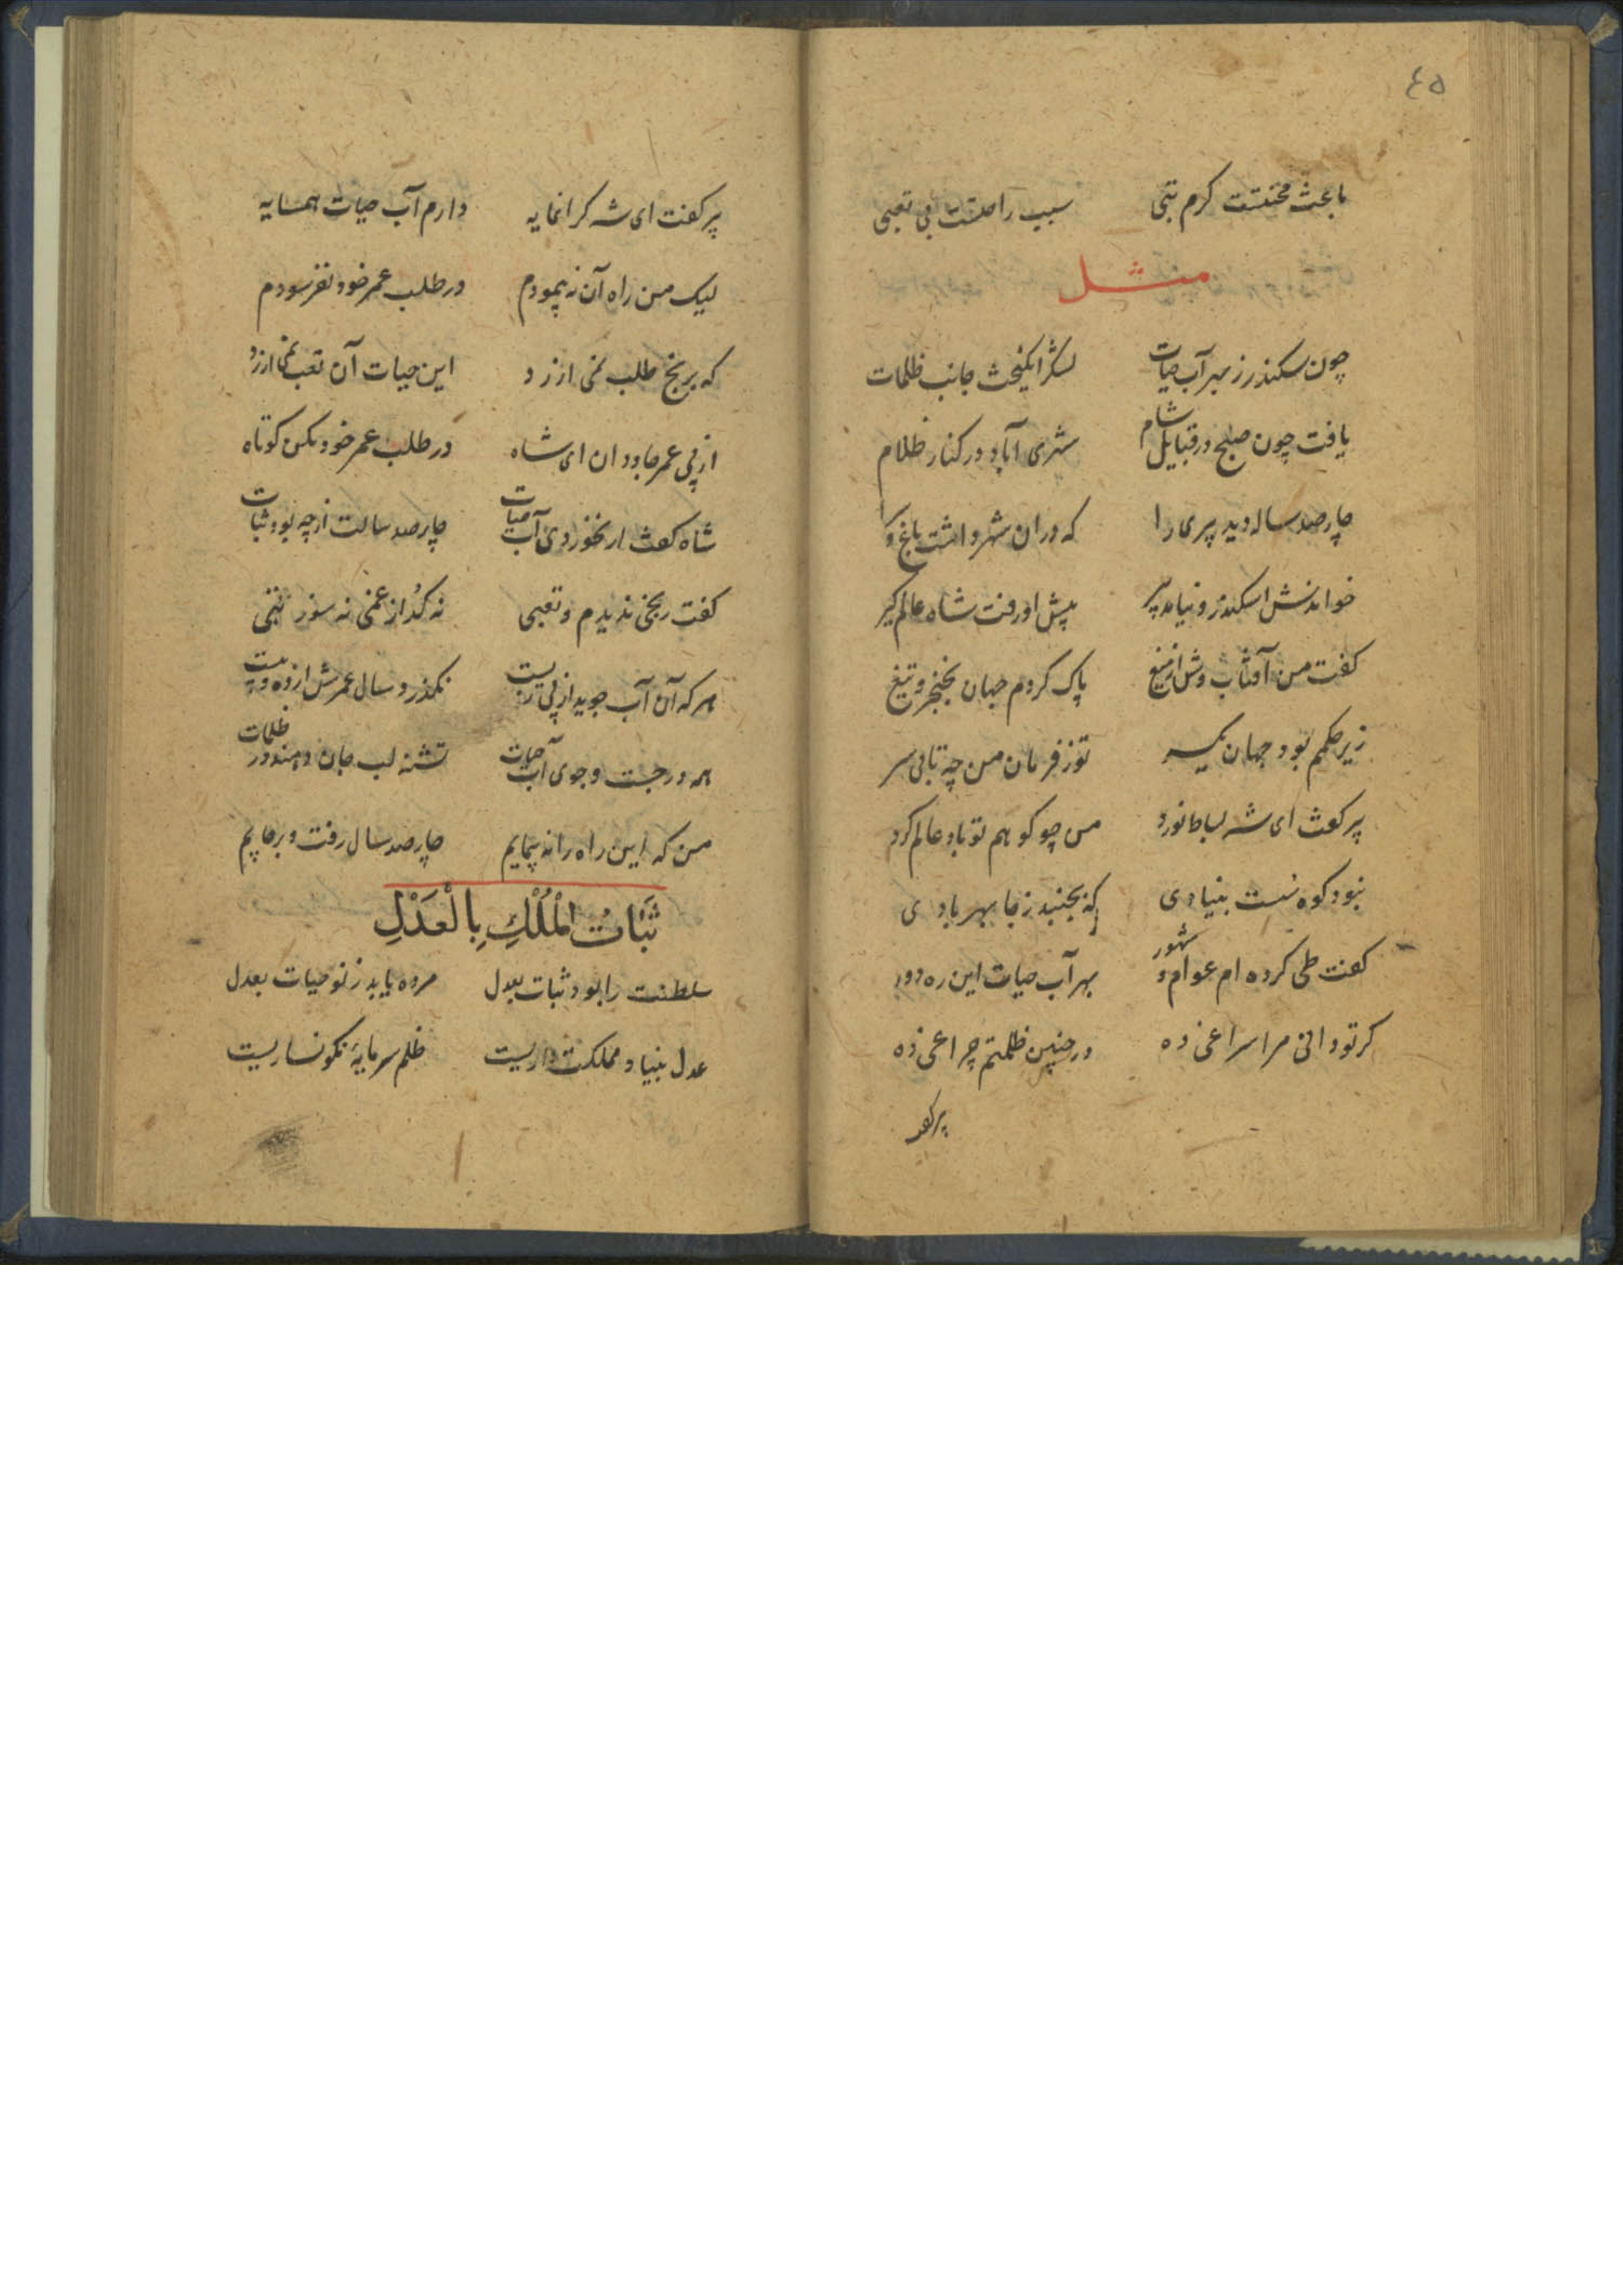 ٤٥
باعث محنتست کرم تبی سبب راحتست بی تعبی
مثل
چون سکندر ز بهر آب حیات لشکر انکیخت جانب ظلمات
یافت چون صبح در قبایل شام شهری آباد در کنار ظلام
چارصد ساله دید پیری را که دران شهر داشت باغ و
خواندنش اسکندر و نیامد پیر پیش او رفت شاه عالم کیر
کفت من آفتاب وش از میغ پاک کردم جهان بخنجر و تیغ
زیر حکمم بود جهان یکسر تو ز فرمان من چه تابی سر
پیر کفت ای شه بساط نورد من چو کوهم تو باد عالم کرد
نبود کوه سست بنیادی که بجنبد ز جا بهر بادی
کفت طی کرده ام عوام و شهور بهر آب حیات این ره دور
کر تو دانی مرا سراغی ده در چنین ظلمتم چراغی ده
پیر کفت
پیر کفت ای شه کرانمایه دارم آب حیات همسایه
لیک من راه آن نه پیمودم در طلب عمر خود نفرسودم
که برنج طلب نمی ارزد این حیات آن تعب نمی ارزد
از پی عمر جاودان ای شاه در طلب عمر خود مکن کوتاه
شاه کفت ار نخوردی آب حیات چارصد سالت از چه بود ثبات
کفت رنجی ندیدم و تعبی نه کداز غمی نه سوز تبی
هر که آن آب جوید از پی زیست نکذرد سال عمرش از ده و بیست
همه در جست و جوی آب حیات تشنه لب جان دهند در ظلمات
من که این راه را نه پیمایم چارصد سال رفت و بر جایم
ثَبَاتُ الْمُلْكِ بِالْعَدْلِ
سلطنت را بود ثبات بعدل مرده یابد ز نو حیات بعدل
عدل بنیاد مملکت داریست ظلم سرمایهٔ نکونساریست